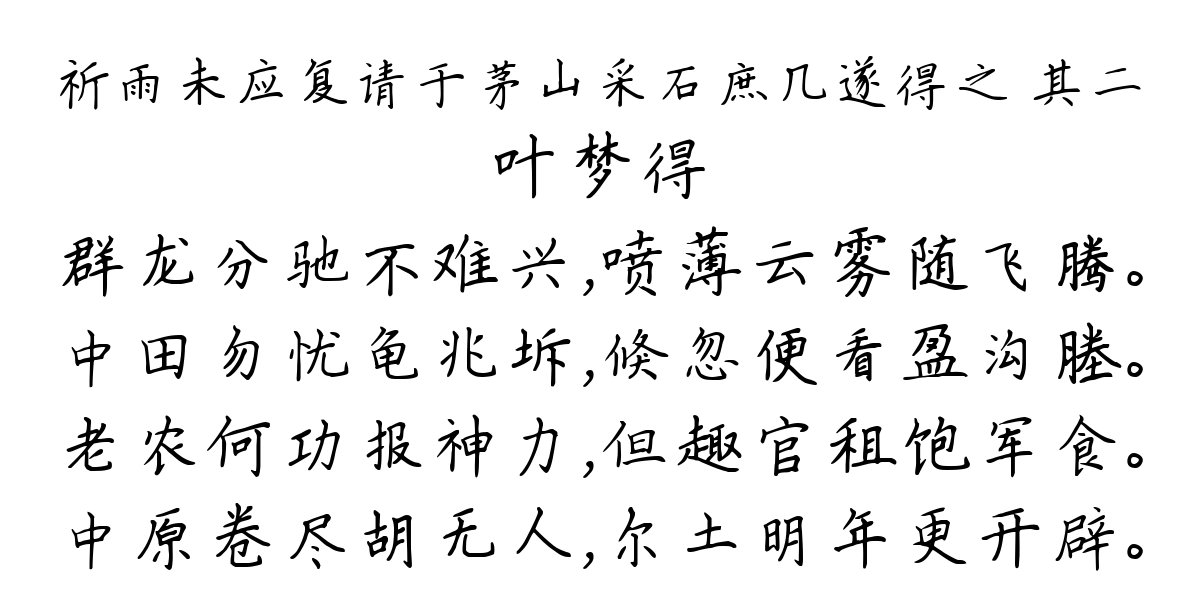 祈雨未应复请于茅山采石庶几遂得之 其二
叶梦得
群龙分驰不难兴,喷薄云雾随飞腾。
中田勿忧龟兆坼,倏忽便看盈沟塍。
老农何功报神力,但趣官租饱军食。
中原卷尽胡无人,尔土明年更开辟。